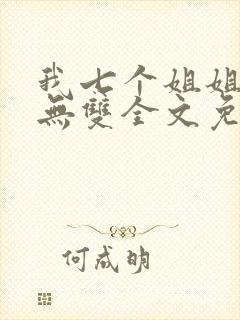 我七个姐姐
無雙全文免
何成明